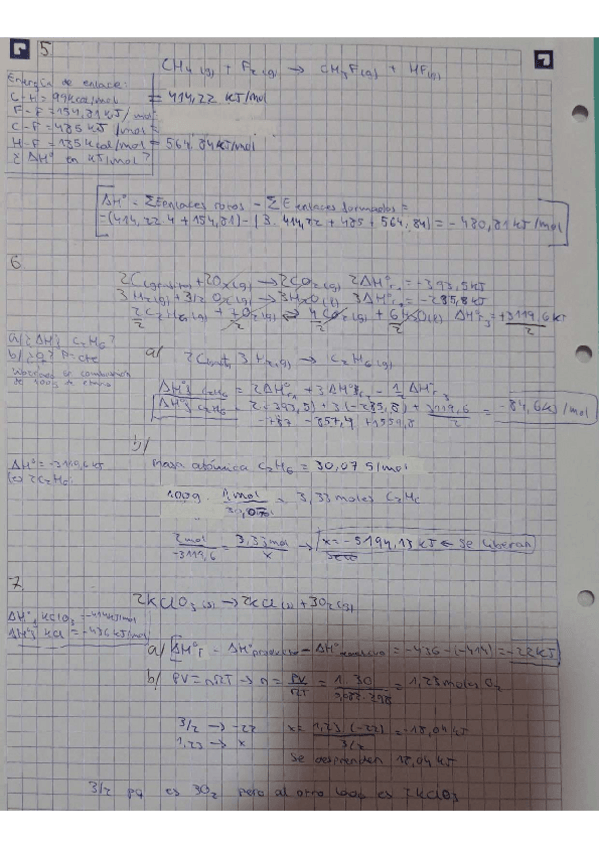 5
CH4 (g) + F2 (g) → CH3F(g) + HF(g)
Energía de enlace:
C-H = 99 kcal/mol = 414,22 kJ/mol
F-F = 154,81 kJ/mol
C-F = 485 kJ/mol =
H-F = 135 kcal/mol = 564,84 kJ/mol
¿ΔHº en kJ/mol?
ΔHº = ΣE enlaces rotos - ΣE enlaces formados =
=(414,22·4 + 154,81) - (3·414,22 + 485 + 564,84) = -480,81 kJ/mol
6
2C(grafito) + 2O2(g) → 2CO2(g) 2ΔHºr1 = -393,5 kJ
3H2(g) + 3/2 O2(g) → 3H2O(l) 3ΔHºr2 = -285,8 kJ
2/2 C2H6(g) + 7/2 O2(g) 4/2 CO2(g) + 6/2 H2O(l) ΔHºr3 = +3119,6 kJ/2
a/¿ΔHºf C2H6?
b/¿Q? P=cte
a/ 3H2(g) → C2H6(g)
de 100g de etano
ΔHºf C2H6 = 2ΔHºr1 + 3ΔHºr2 - 1/2 ΔHºr3
ΔHºf C2H6 = 2(-393,5) + 3(-285,8) + 3119,6/2 = -84,6 kJ/mol
-787 -857,4 +1559,8
b/
ΔHº = -3119,6 kJ
masa atómica C2H6 = 30,07 g/mol
100g · 1mol = 3,33 moles C2H6
2mol/-3119,6 = 3,33mol/x → x = -5194,13 kJ ← se liberan
7
2KClO3 (s) → 2KCl (s) + 3O2(g)
ΔHºf KCl = -436 kJ/mol
a/ ΔHºr = ΔHº producto - ΔHº reactivo = -436-(-414) = -22 kJ
b/ PV = nRT → n = PV/RT = 1·30/0,082·298 = 1,23 moles O2
3/2 → -22 x = 1,23·(-22)/3/2 = -18,04 kJ
1,23 → x
Se desprenden 18,04 kJ
3/2 pq es 3O2 pero al otro lado es 2KClO3